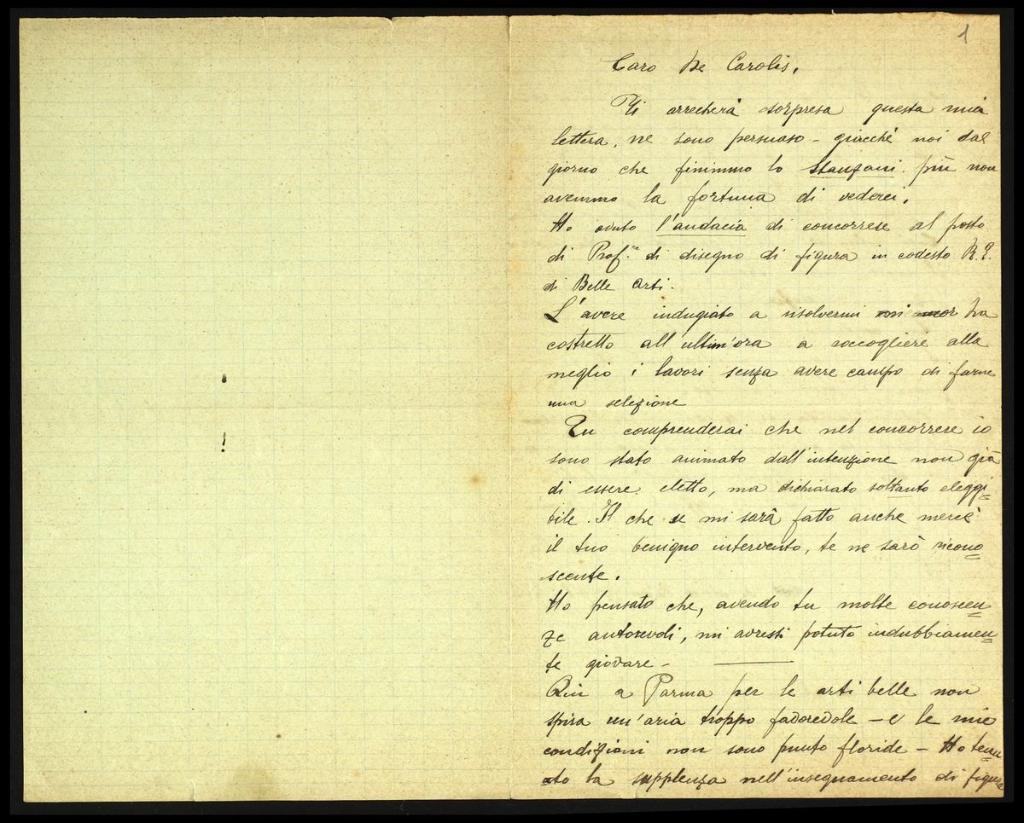 1
Caro De Carolis,
Ti arrecherà sorpresa questa mia
lettera, ne sono persuaso - giacchè noi dal
giorno che finimmo lo Stanzani più non
avemmo la fortuna di vederci.
Ho avuto l'audacia di concorrere al posto
di Prof.re di disegno di figura in codesto R. I.
di Belle Arti.
L'avere indugiato a risolvermi mi ha
costretto all'ultim'ora a raccogliere alla
meglio i lavori senza avere campo di farne
una selezione
Tu comprenderai che nel concorrere io
sono stato animato dall'intenzione non già
di essere eletto, ma dichiarato soltanto eleggi=
bile. Il che se mi sarà fatto anche mercè
il tuo benigno intervento, te ne sarò ricono=
scente.
Ho pensato che, avendo tu molte conoscen=
ze autorevoli, mi avresti potuto indubbiamen=
te giovare -
Qui a Parma per le arti belle non
spira un'aria troppo favorevole - e le mie
condizioni non sono punto floride - Ho tenu
to la supplenza nell'insegnamento di figura